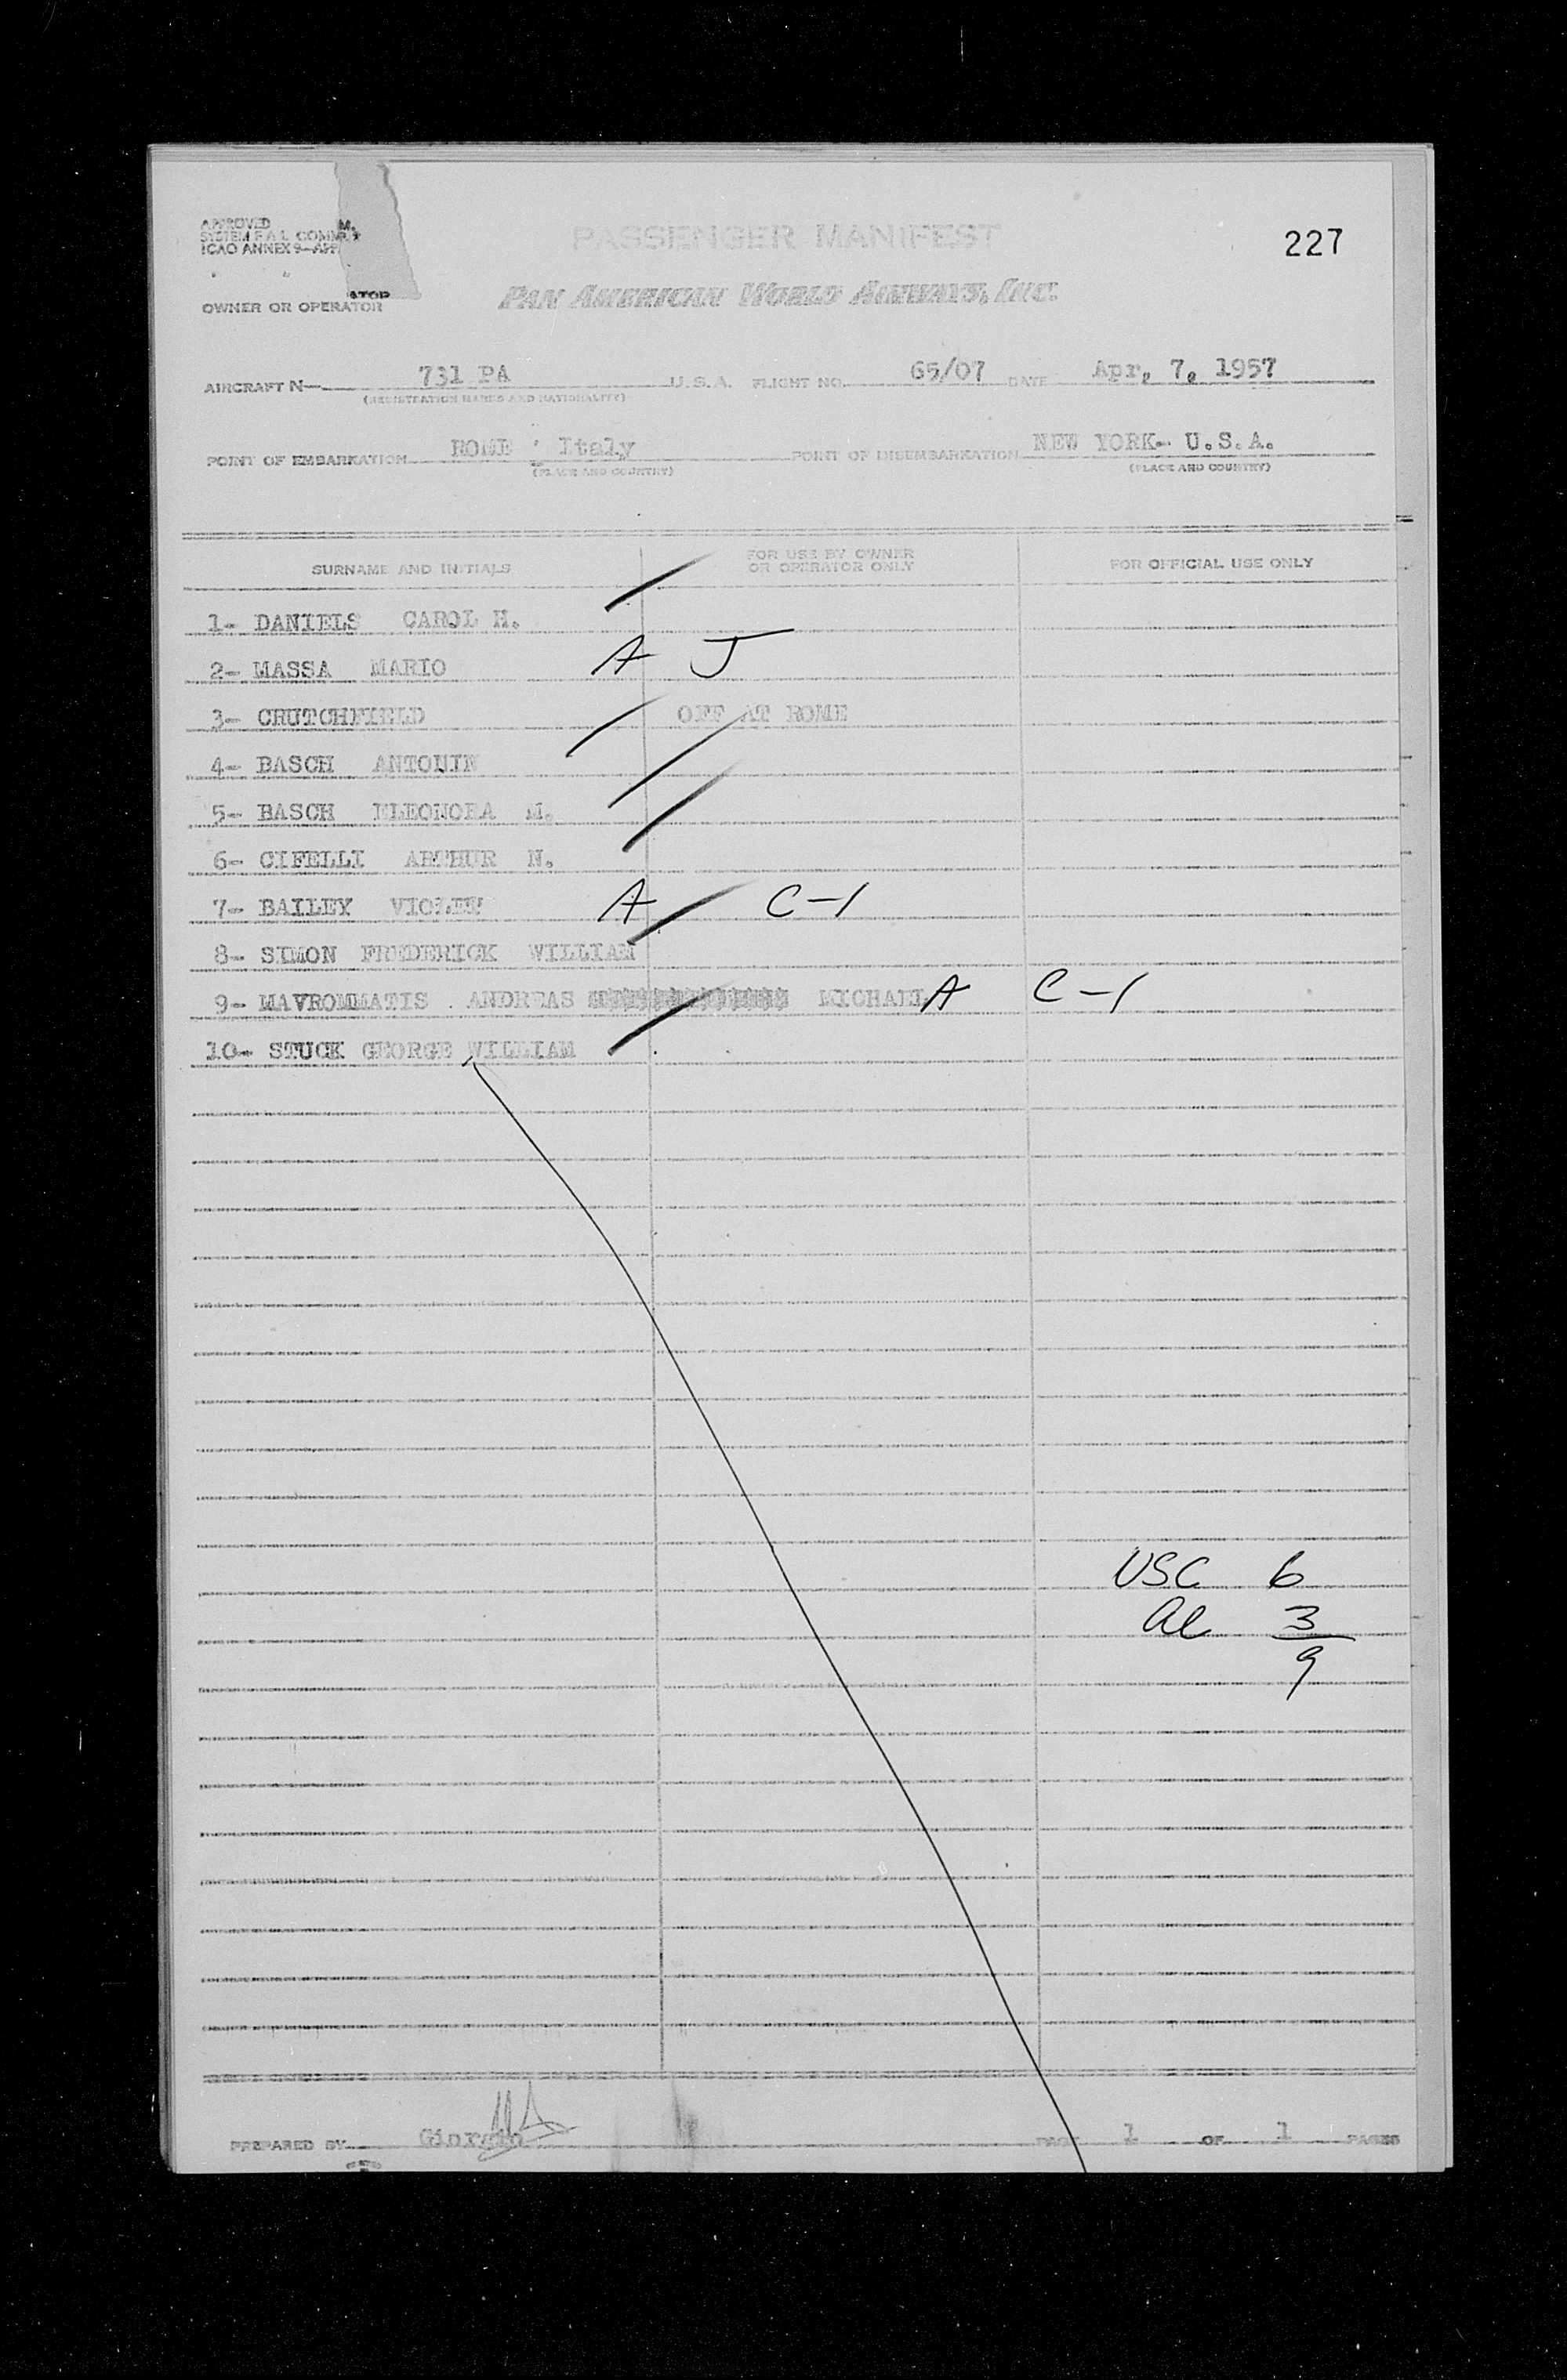 APPROVED M.
SYSTEM F.A.L. COMM.
ICAO ANNEX 9—
PASSENGER MANIFEST
227
ATOR
OWNER OR OPERATOR
PAN AMERICAN WORLD AIRWAYS, INC.
AIRCRAFT N— 731 PA U.S.A. FLIGHT NO. 65/07 DATE Apr, 7, 1957
(REGISTRATION MARKS AND NATIONALITY)
POINT OF EMBARKATION ROME Italy POINT OF DISEMBARKATION NEW YORK- U.S.A.
(PLACE AND COUNTRY) (PLACE AND COUNTRY)
SURNAME AND INITIALS FOR USE BY OWNER OR OPERATOR ONLY FOR OFFICIAL USE ONLY
1- DANIELS CAROL H.
2- MASSA MARIO A J
3- CRUTCHFIELD OFF AT ROME
4- BASCH ANTONIN
5- BASCH ELEONORA M.
6- CIFELLI ARTHUR N.
7- BAILEY VIOLET A C-1
8- SIMON FREDERICK WILLIAM
9- MAVROMMATIS ANDREAS MICHAEL A C-1
10- STUCK GEORGE WILLIAM
USC 6
Al 3
9
PREPARED BY Giorgio PAGE 1 OF 1 PAGES